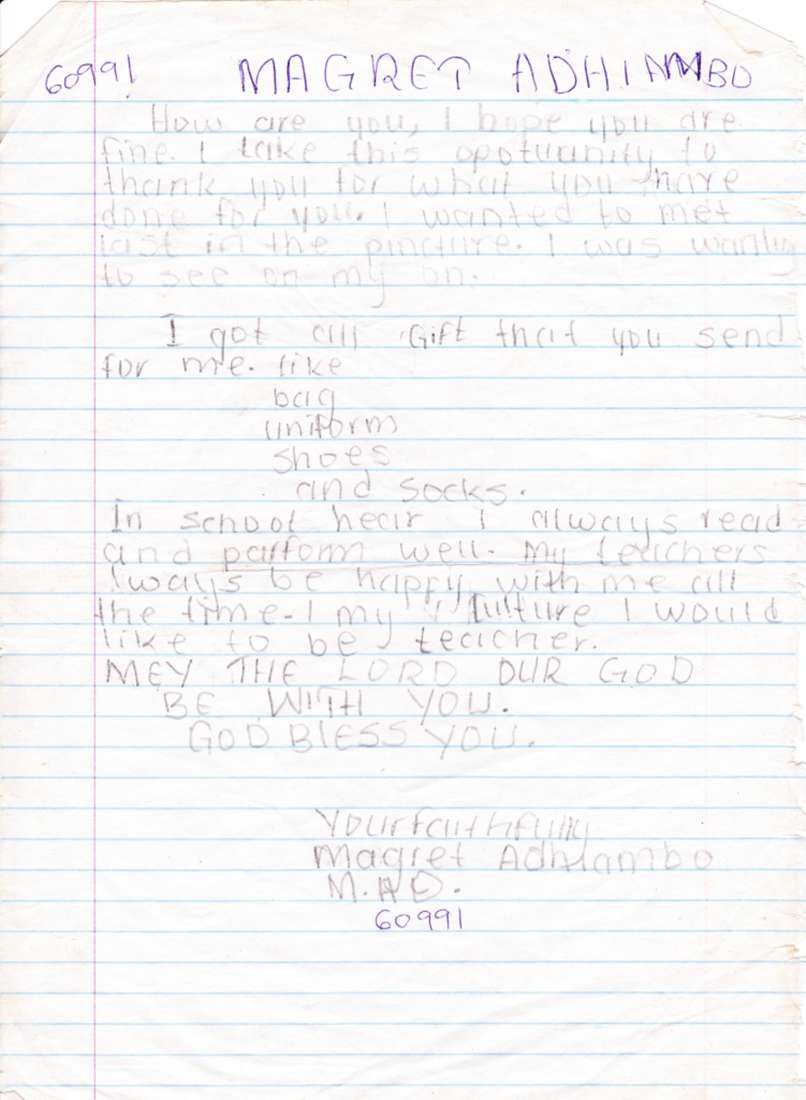 60991 MAGRET ADHIAMBO
How are you, I hope you are
fine. I take this opotuanity to
thank you for what you have
done for you. I wanted to met
last in the pincture. I was wanting
to see on my on.
I got all Gift that you send
for me. like
bag
uniform
shoes
and socks.
In school hear I always read
and parform well. My teachers
lways be happy with me all
the time. I my fulture I would
like to be teacher.
MEY THE LORD OUR GOD
BE WITH YOU.
GOD BLESS YOU.
Your faithfully
Magret Adhiambo
60991